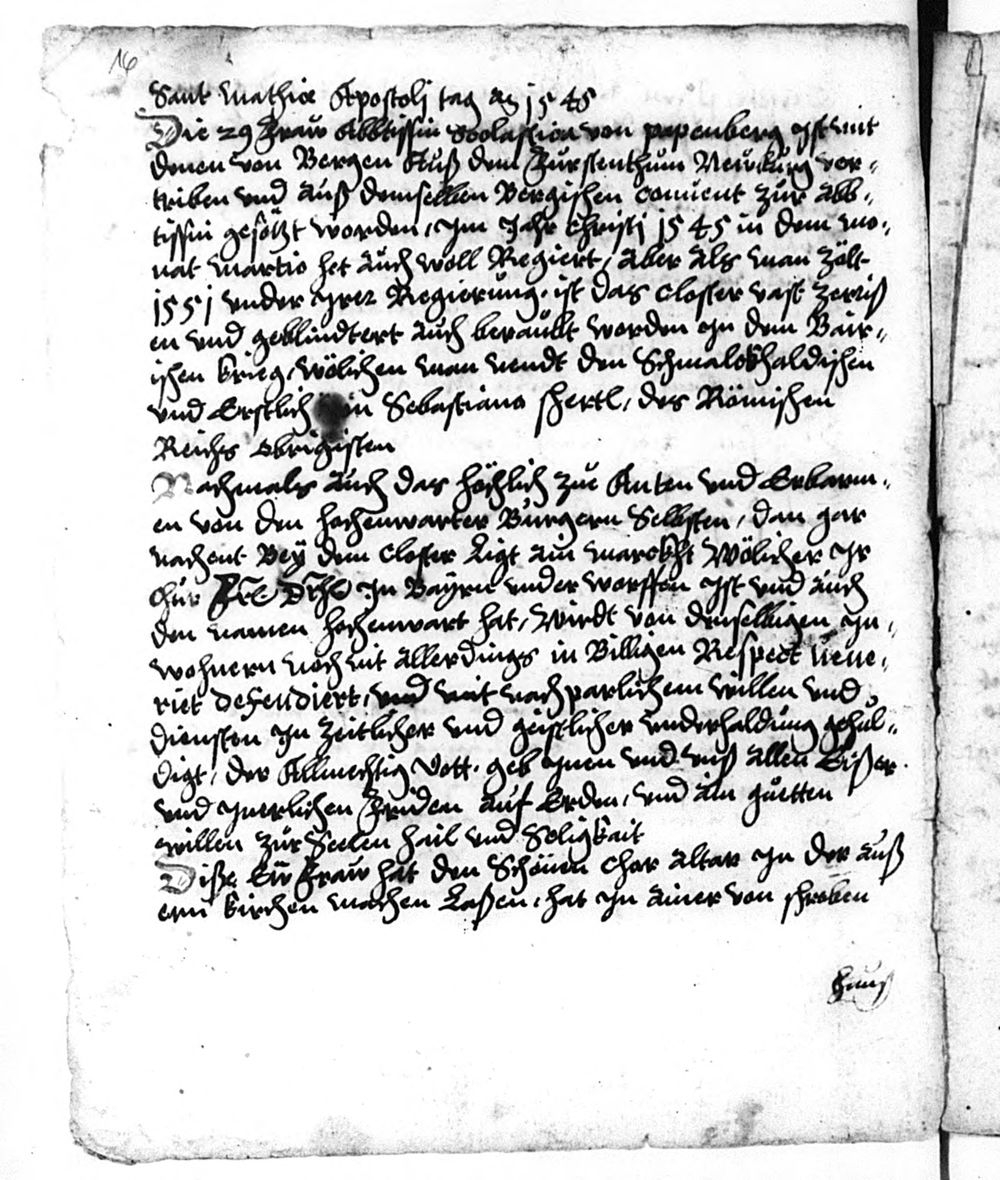 16
Sant Mathiæ Apostoli tag Aº 1545
Die 29 Fraw Abbtissin Scolastica von papenberg ist mit
denen von Bergen Auß dem Fürstenthum Neuburg ver¬
triben vnd auß demselben Bergischen Conuent zur Abb¬
tissin gesötzt worden, Im Jahr Christi 1545 in dem Mo¬
nat Martio het auch woll Regiert, Aber als man zölt
1551 vnder Irer Regierung, ist das Closter vast zerriß
en vnd geblindtert auch beraubt worden In dem Bair¬
ischen krieg, wölichen man nendt den Schmalckhaldischen
vnd Erstlich von Sebastiano schertl, des Römischen
Reichs obrigisten
Nachmals auch das höchlich zue Anten vnd Erbarm¬
en von den hochenwarter Burgern Selbsten, dan gar
nachent Bey dem Closter Ligt ain marckht Wölicher Ir
Chur Frl Dhl In Bayrn vnder worffen Ist vnd auch
den namen hochenwart hat, Wirdt von denselbigen In¬
wohnern noch mit allerdings in Billigen Respect vene¬
riet defendiert, vnd mit nachparlichem willen vnd
diensten In Zeitlicher vnd geistlicher vnderhaldung gehul¬
digt, der Allmechtig Gott, geb Inen vnd vnß allen Eißer
vnd Inerlichen Friden auf Erden, vnd ain guetten
willen zur Seelen hail vnd Seligkait
Diße Ew Fraw hat den Schönen Chor altar In der auß
ern kirchen machen Laßen, hat In ainer von schroben
hauß